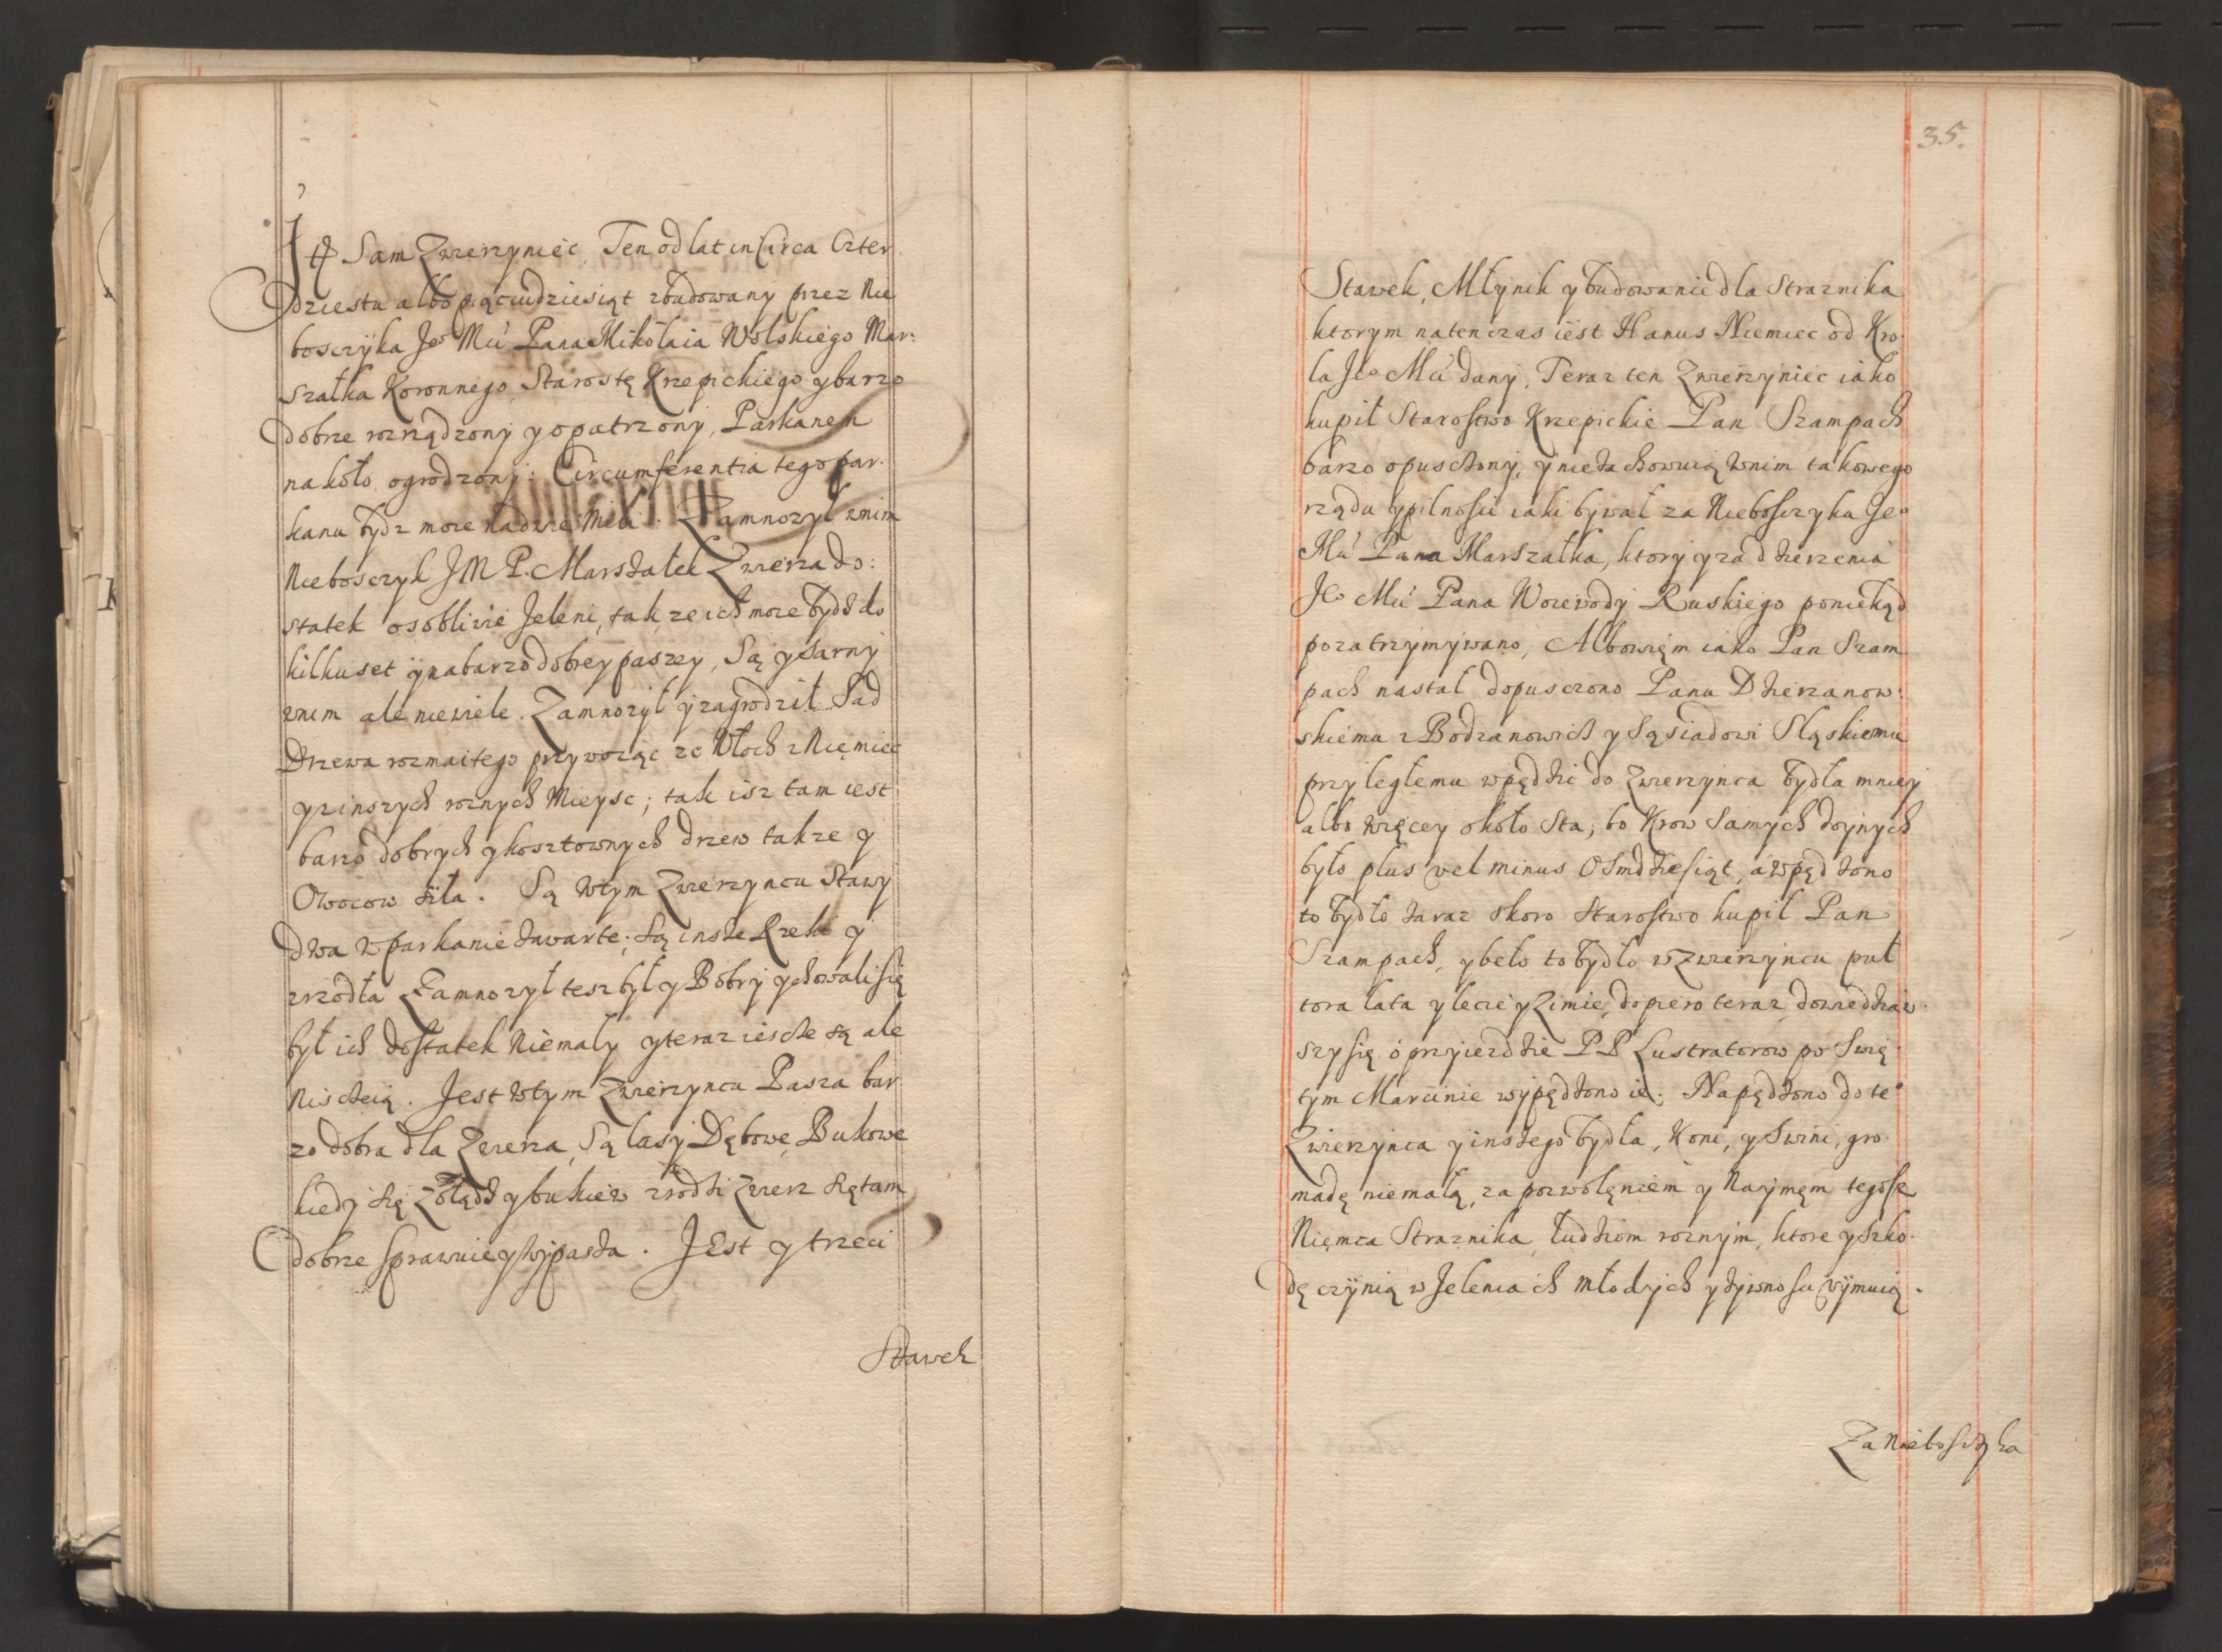 Itē Sam Zwierzyniec, Ten od lat in Circa Czter
dziestu albo piąciudziesiąt zbudowany przez Nie
bosczyka Jeo Mci Pana Mikołaia Wolskiego Mar:
szałka Koronnego, Starostę Krzepickiego y barzo
dobrze rozrządzony y opatrzony, Parkanem
nakoło ogrodzony: Circumferentia tego par:
kanu bydz moze nadwie Mili. Zamnozył wnim
Nieboszczyk JM P. Marszałek Zwierza do:
statek osobliwie Jeleni, tak, ze ich moze bydz do
kilkuset y nabarzo dobrey paszey, Są y Sarny
wnim ale niewiele. Zamnozył y zagrodził Sad
Drzewa rozmaitego przywoząc ze Włoch z Niemiec
y z inszych roznych Mieysc; tak isz tam iest
barzo dobrych y kosztownych drzew takze y
Owocow siła. Są wtym Zwierzyncu Stawy
dwa w parkanie zawarte; są insze Rzeki y
zrzodła Zamnozył tesz był y Bobry y chowali się
był ich dostatek Niemały y teraz iescze są ale
Nisczeią. Jest wtym Zwierzyncu Pasza bar
zo dobra dla Zwierza, Są lasy Dębowe, Bukowe
kiedy się Zołądz y bukiew zrodzi Zwierz się tam
dobrze sprawuie y wypasza. JEst y trzeci
Stawek
35.
Stawek, Młynik y budowanie dla Straznika
ktorym natenczas iest Hanus Niemiec od Kro
la Jeo Mci dany, Teraz ten Zwierzyniec iako
kupił Starostwo Krzepickie Pan Szampach
barzo opusczony, y niezachowuią wnim takowego
rządu y pilnosci iaki bywał za Nieboszczyka Jeo
Mci Pana Marszałka, ktory y za dzierzenia
Jeo Mci Pana Woiewody Ruskiego poniekąd
pozatrzymywano, Albowięm iako Pan Szam
pach nastał dopusczono Panu Dzierzanow:
skiemu z Bodzanowich y Sąsiadowi Sląskiemu
przyległemu wpędzić do Zwierzynca bydła mniey
albo więcey około sta; bo Krow samych doynych
było plus vel minus Osmdziesiąt, a wpędzono
to bydło zaraz skoro Starostwo kupił Pan
Szampach, y beło to bydło w Zwierzyncu puł
tora lata y lecie y Zimie, dopiero teraz dowiedziaw
szy się o przyiezdzie PP Lustratorow po Swię
tym Marcinie wypędzono ie; Napędzono do teo
Zwierzynca y inszego bydła, Koni, y Swini, gro
madę niemałą, za pozwolęniem y Naymęm tegosz
Nięmca Straznika, ludziom roznym, ktore y szko
dę czynią w Jeleniach młodych y zywnosci uymuią.
Za Nieboszczyka